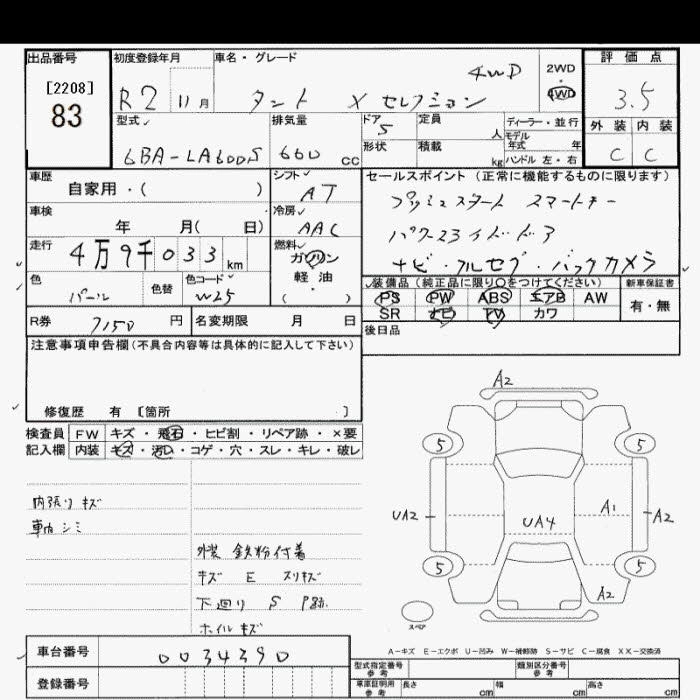 出品番号 初度登録年月 車名・グレード 評価点
[2208] 4WD 2WD
・
83 R2 11月 タント Xセレクション 4WD 3.5
型式 排気量 ドア 5 定員 人 ディーラー・並行 外装 内装
モデル
年式 年
6BA-LA600S 660 cc 形状 積載 kg ハンドル 左・右 C C
車歴 シフト セールスポイント(正常に機能するものに限ります)
自家用・( ) AT プッシュスタート スマートキー
車検 冷房
年 月( 日) AAC パワースライドドア
走行 燃料
4万9千033km ガソリン ナビ・フルセグ・バックカメラ
軽油
色 色替 色コード ( ) 装備品(純正品に限り○をつけてください) 新車保証書
パール W25 PS PW ABS エアB AW 有・無
SR ナビ TV カワ
R券 7150 円 名変期限 月 日 後日品
注意事項申告欄(不具合内容等は具体的に記入して下さい)
修復歴 有 [箇所 ]
検査員 FW キズ・飛石・ヒビ割・リペア跡・×要
記入欄 内装 キズ・汚れ・コゲ・穴・スレ・キレ・破レ
内張りキズ
車内シミ
外装 鉄粉付着
キズ E スリキズ
下廻り S P跡
ホイルキズ
A2
5 5
UA2 UA4 A1 A2
5 5
A2
スペア
A-キズ E-エクボ U-凹み W-補修跡 S-サビ C-腐食 XX-交換済
車台番号 0034390
登録番号
型式指定番号 参考 類別区分番号 参考
車庫証明用 参考 長さ cm 幅 cm 高さ cm